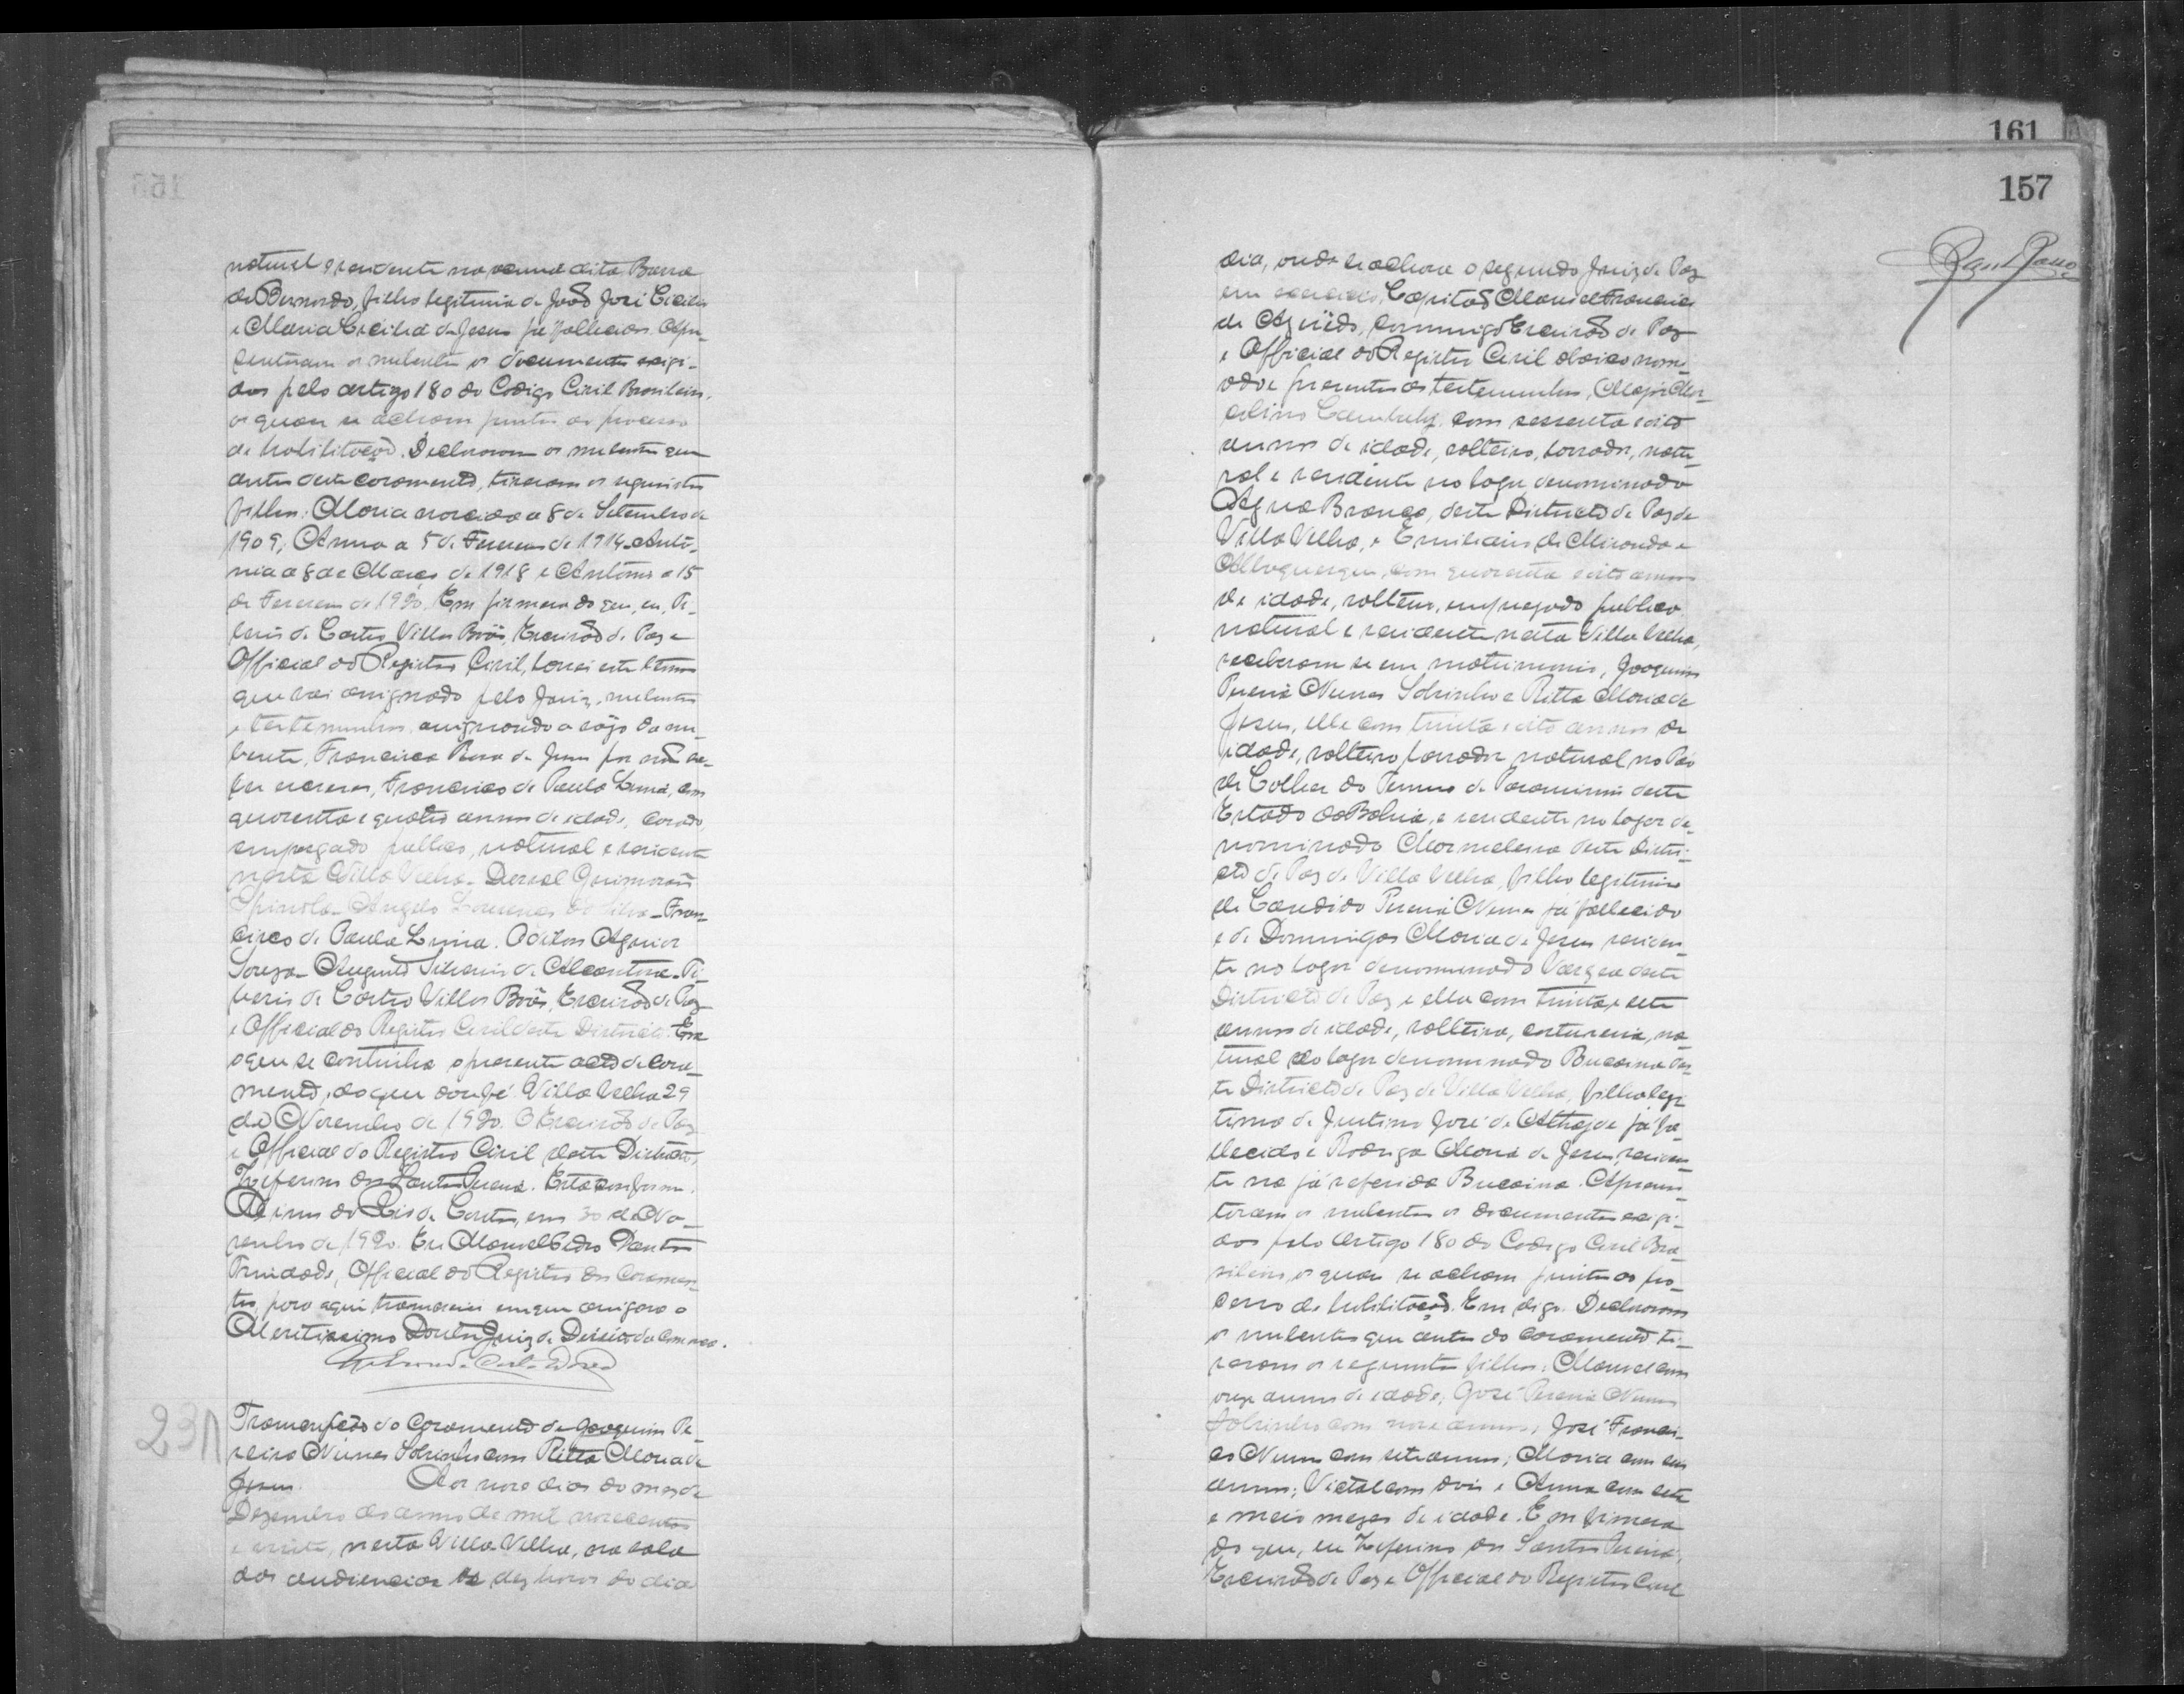 natural e residente na mesma dita Barra
do Bernardo, filha legitima de João José Cicilio
e Maria Cicilia de Jesus já fallecidos. Apre-
sentaram os nubentes os documentos exigi-
dos pelo artigo 180 do Codigo Civil Brasileiro,
os quaes se acham juntos ao processo
de habilitação. Declararam os nubentes que
antes deste casamento, tiveram os seguintes
filhos: Maria nascida a 8 de Setembro de
1909, Anna a 5 de Fevereiro de 1914, Anto-
nia a 8 de Março de 1918 e Antonio a 15
de Fevereiro de 1920. Em firmesa do que, eu, Ti-
berio de Castro Villas Boas, Escrivão de Paz e
Official do Registro Civil, lavrei este termo
que vai assignado pelo Juiz, nubentes
e testemunhas, assignando a rôgo da nu-
bente, Francisca Rosa de Jesus por não sa-
ber escrever, Francisco de Paula Lima, com
quarenta e quatro annos de idade, casado,
empregado publico, natural e residente
nesta Villa Velha. Derval Guimarães
Spinola. Angelo Lourenço da Silva. Fran-
cisco de Paula Lima. Odilon Aguiar
Souza. Augusto Silverio de Alcantara. Ti-
berio de Castro Villas Boas, Escrivão de Paz
e Official do Registro Civil deste Districto. Era
o que se continha o presente acto de casa-
mento, do que dou fé. Villa Velha 29
de Novembro de 1920. O Escrivão de Paz
e Official do Registro Civil deste Districto,
Zeferino dos Santos Pereira. Está conforme.
do Rio de Contas, em 30 de No-
vembro de 1920. Eu Manoel Pedro Dantas
Trindade, Official do Registro dos Casamen-
tos, para aqui transcrevi em que assigna o
Meretissimo Doutor Juiz de Direito da Comarca.
231
Transcripção do Casamento de Joaquim Pe-
reira Nunes Sobrinho com Ritta Maria de
Jesus. Aos nove dias do mes de
Dezembro do anno de mil novecentos
e vinte, nesta Villa Velha, na sala
das audiencias as dez horas do dia
161
157
dia, onde se achava o segundo Juiz de Paz
em exercicio, Capitão Manoel Francisco
de Azevêdo, commigo Escrivão de Paz
e Official do Registro Civil abaixo nome-
ado e presentes as testemunhas, Major Mar-
colino Cambuhy, com sessenta e oito
annos de idade, solteiro, lavrador, natu-
ral e residente no logar denominado
Agua Branca, deste Districto de Paz de
Villa Velha, e Emiliano de Miranda e
Albuquerque, com quarenta e oito annos
de idade, solteiro, empregado publico
natural e residente nesta Villa Velha,
receberam se em matrimonio, Joaquim
Pereira Nunes Sobrinho e Ritta Maria de
Jesus, elle com trinta e oito annos de
idade, solteiro, lavrador, natural no Páo
de Colher do Termo de Paramirim deste
Estado da Bahia, e residente no logar de-
nominado Marmeleiro deste Distri-
cto de Paz de Villa Velha, filho legitimo
de Candido Pereira Nunes já fallecido
e de Domingas Maria de Jesus residen-
te no logar denominado Vargea deste
Districto de Paz e ella com trinta e sete
annos de idade, solteira, costureira, na-
tural do logar denominado Bucaina des-
te Districto de Paz de Villa Velha, filha legi-
tima de Justino José de Athayde já fa-
llecido e Rodriga Maria de Jesus, residen-
te na já referida Bucaina. Apresen-
taram os nubentes os documentos exigi-
dos pelo artigo 180 do Codigo Civil Bra-
sileiro, os quaes se acham juntos ao pro-
cesso de habilitação. Em digo. Declararam
os nubentes que antes do casamento ti-
veram os seguintes filhos: Manoel com
onze annos de idade; José Pereira Nunes
Sobrinho com nove annos; José Francis-
co Nunes com sete annos; Maria com seis
annos; Victal com dois e Anna com sete
e meio mezes de idade. Em firmesa
do que, eu Zeferino dos Santos Pereira,
Escrivão de Paz e Official do Registro Civil